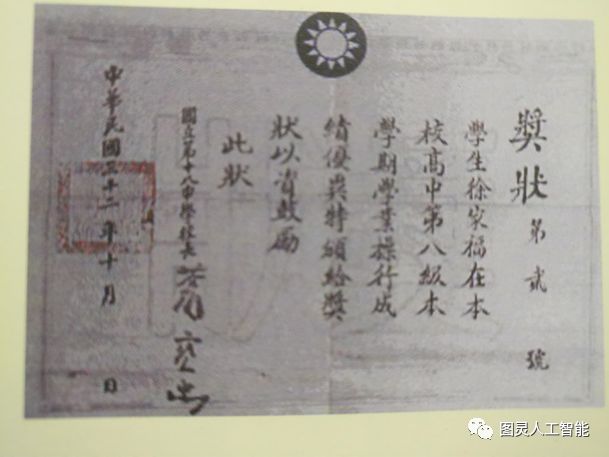 獎狀第貳號
學生徐家福在本
校高中第八級本
學期學業操行成
績優異特頒給獎
狀以資鼓勵
此狀
國立第十八中學校長
中華民國三十二年十月 日
图灵人工智能